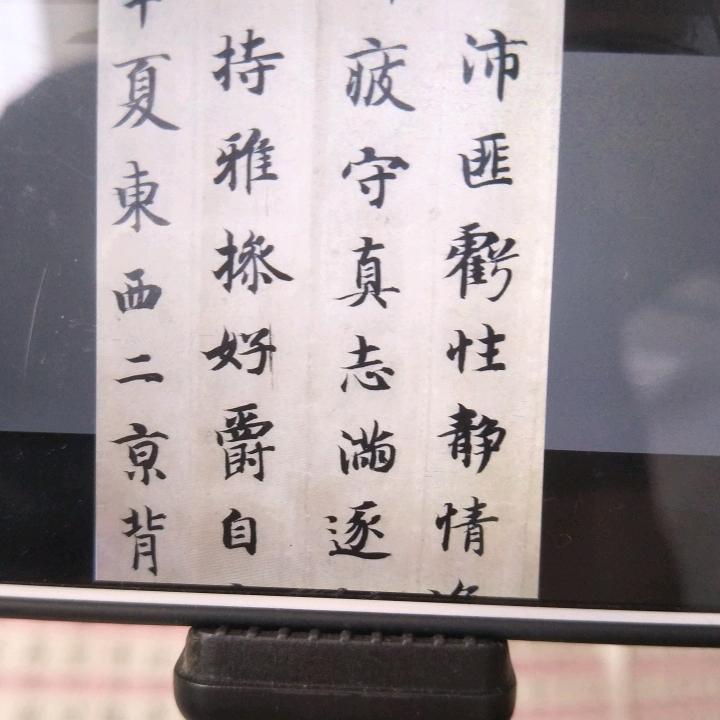 沛匪虧性静情
疲守真志滿逐
持雅操好爵自
夏東西二京背